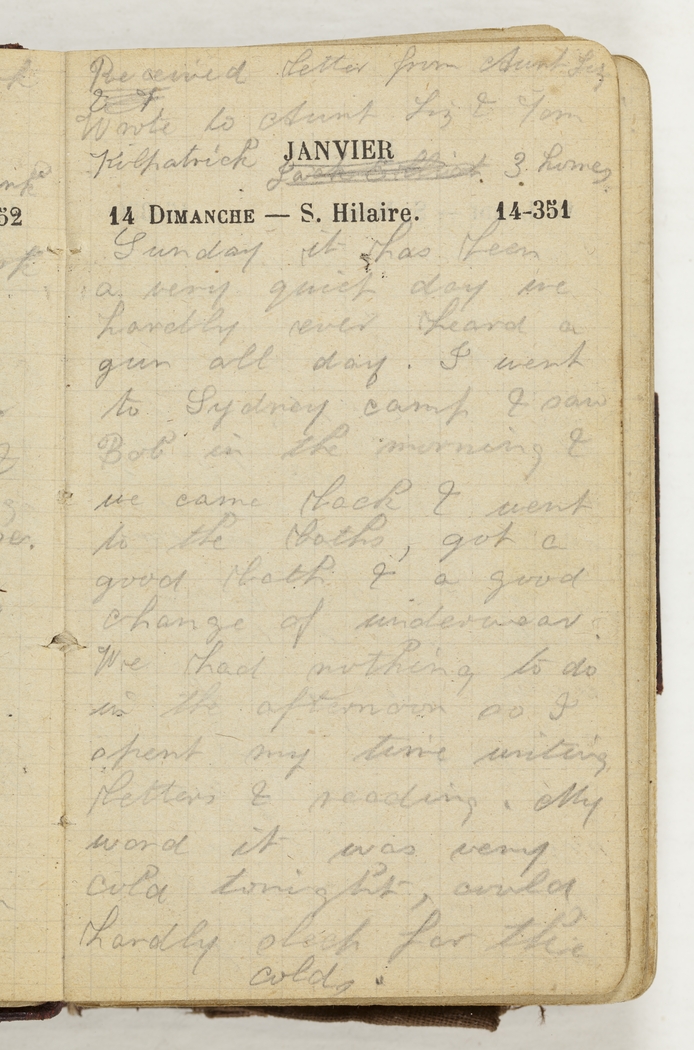 Received letter from Aunt Liz
Wrote to Aunt Liz & Tom
Kilpatrick JANVIER
Jack Elliott. 3 homes.
14 DIMANCHE — S. Hilaire. 14-351
Sunday it has been
a very quiet day we
hardly ever heard a
gun all day. I went
to Sydney camp & saw
Bob in the morning &
we came back & went
to the baths, got a
good bath & a good
change of underwear.
We had nothing to do
in the afternoon so I
spent my time writing
letters & reading. My
word it was very
cold tonight, could
hardly sleep for the
cold.
52